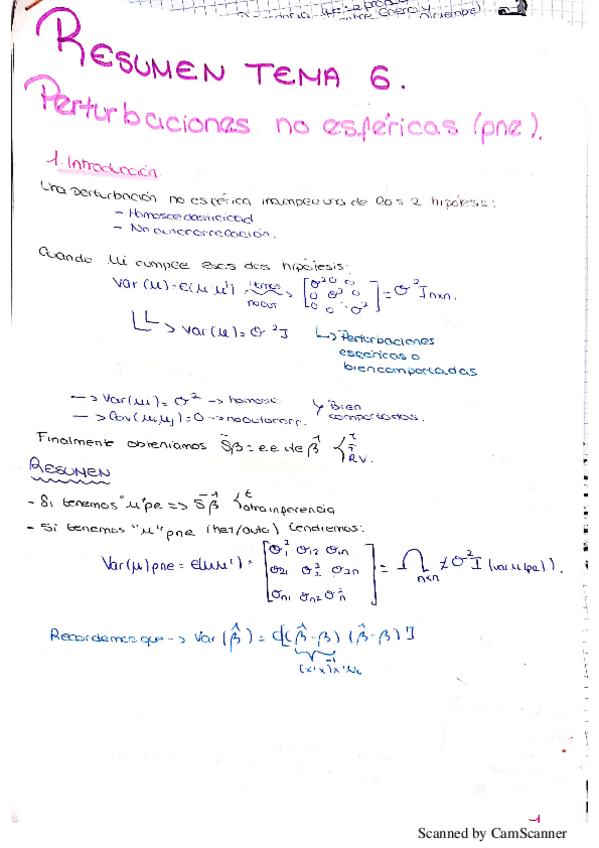 entre Enero y Diciembre)
RESUMEN TEMA 6.
Perturbaciones no esféricas (pne).
1. Introducción
Una perturbación no esférica incumple una de las 2 hipótesis:
- Homoscedasticidad
- No autocorrelación.
Cuando Mi cumple esas dos hipótesis:
Var (μ) = E(μ·μ') → [σ² 0 0 0 σ² 0 0 0 σ²] = σ² I nxn.
no aut
↳ > Var(μ) = σ² I ↳> Perturbaciones
esféricas o
bien comportadas
—> Var(μi) = σ² -> homosc. Bien
—> Cov(μi μj) = 0 -> no autocorr. comportadas.
Finalmente obteníamos Sβ̂ = e.e de β̂ { t F RV.
RESUMEN
- Si tenemos "μ" pe => Sβ̂ { t otra inferencia
- Si tenemos "μ" pne (het/auto) tendremos:
Var(μ) pne = E(μμ') = [σ²1 σ12 σ1n σ21 σ²2 σ2n σn1 σn2 σ²n] = Ω nxn ≠ σ² I (var μ (pe)).
Recordemos que -> Var (β̂) = E[(β̂ - β) (β̂ - β)']
(x'x)⁻¹x'μ
1
Scanned by CamScanner